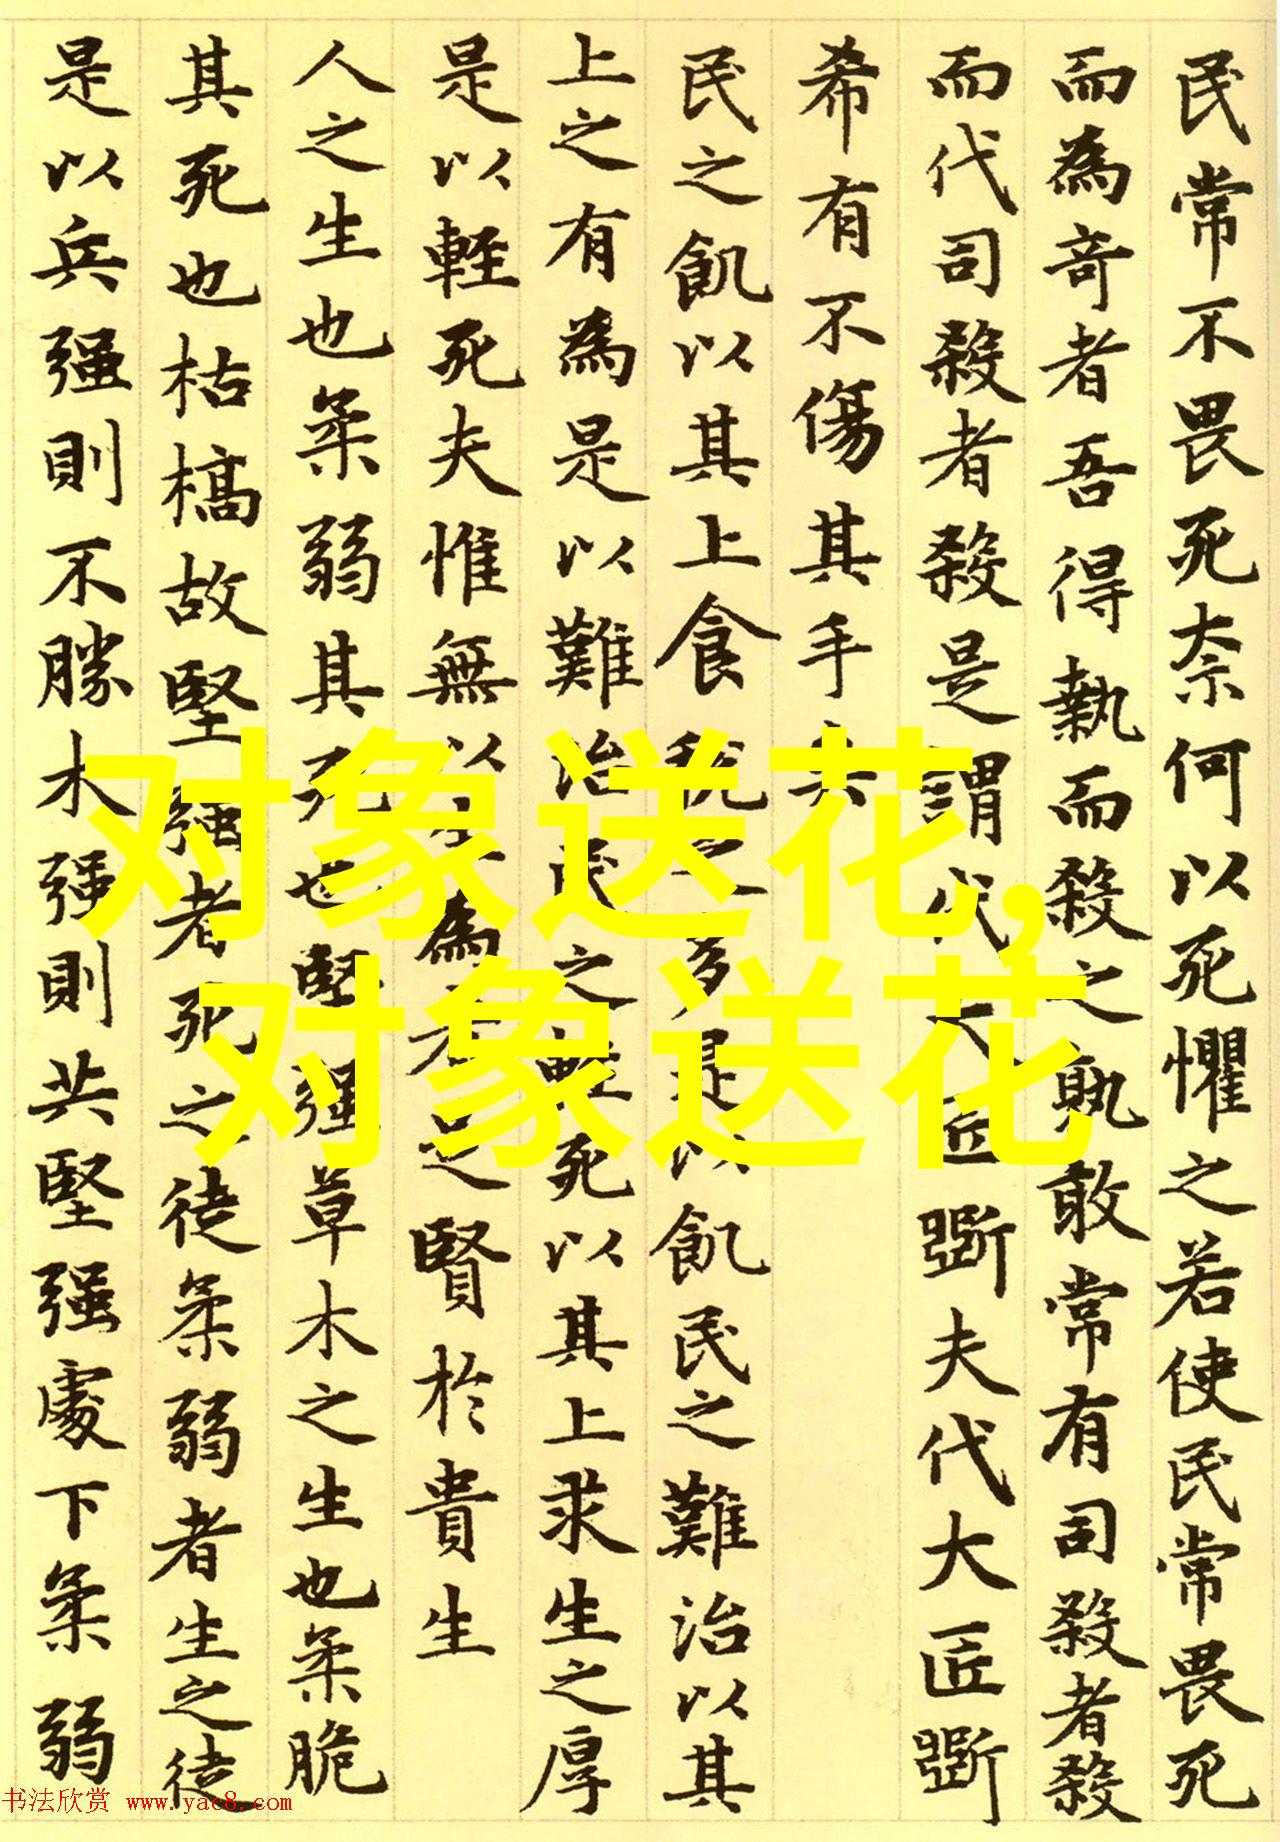 民常不畏死奈何以死懼之若使民常畏死
而為竒者吾得執而殺之孰敢常有司殺者殺
而代司殺者殺是謂代大匠斲夫代大匠斲
希有不傷其手矣
民之飢以其上食稅之多是以飢民之難治以其
上之有為是以難治民之輕死以其上求生之厚
是以輕死夫惟無以生為者是賢於貴生
人之生也柔弱其死也堅强草木之生也柔脆
其死也枯槁故堅强者死之徒柔弱者生之徒
是以兵强則不勝木强則共堅强處下柔弱
对象送花,
对象送花
书法欣赏 www.yac8.com